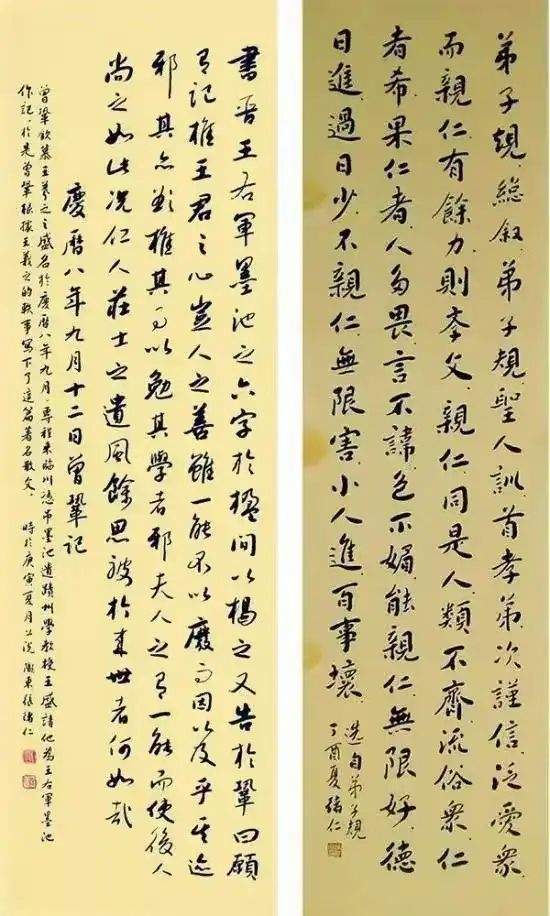 弟子規總叙弟子規聖人訓首孝弟次謹信泛愛衆
而親仁有餘力則學文親仁同是人類不齊流俗衆仁
者希果仁者人多畏言不諱色不媚能親仁無限好德
日進過日少不親仁無限害小人進百事壞
選自弟子規
丁酉夏緒仁
書晉王右軍墨池之六字於楹間以揭之又告於鞏曰願
有記推王君之心豈人之善雖一能不以廢而因以及乎其迹
邪其亦欲推其事以勉其學者邪夫人之有一能而使後人
尚之如此况仁人莊士之遺風餘思被於來世者何如哉
慶曆八年九月十二日曾鞏記
曾鞏欽慕王羲之之盛名於慶曆八年九月專程來臨川憑吊墨池遺蹟州學教授王盛請他為王右軍墨池
作記於是曾鞏根據王羲之的軼事寫下了這篇著名散文時於庚寅夏月張緒仁